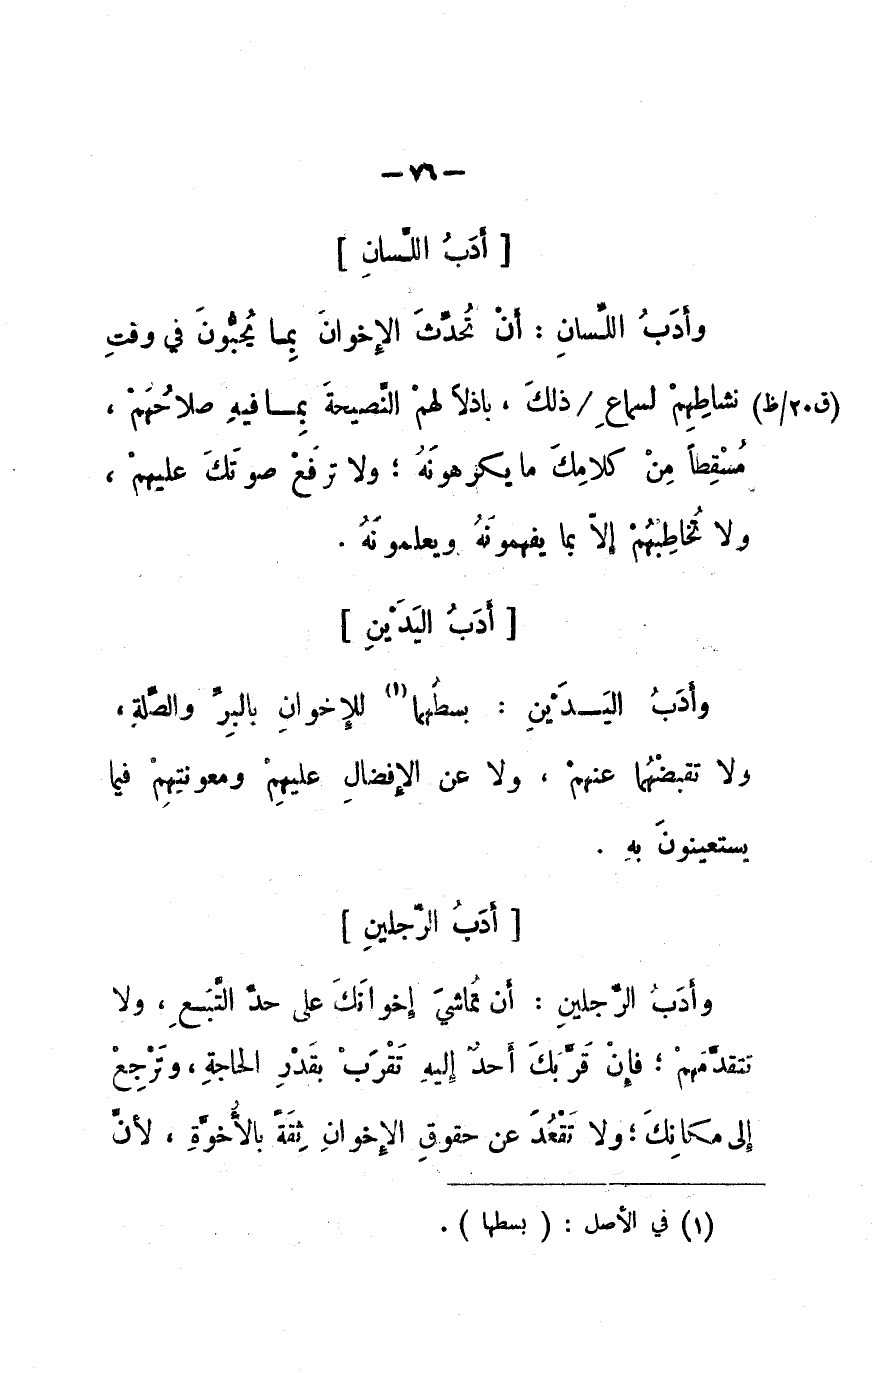 — ٧٦ —
[ أَدَبُ اللَّسانِ ]
وأَدَبُ اللَّسانِ : أَنْ تُحدَّثَ الإِخوانَ بِمـا يُحِبُّونَ في وقتِ
(ق٢٠/ظ) نشاطِهِمْ لسماعِ / ذلكَ ، باذلاً لهمْ النَّصيحةَ بِمــا فيهِ صلاحُهَمْ ،
مُسْقِطاً مِنْ كلامِكَ ما يكرهونَهُ ؛ ولا ترفَعْ صوتَكَ عليهمْ ،
ولا تُخاطِبْهُمْ إلاّ بما يفهمونَهُ ويعلمونَهُ .
[ أَدَبُ اليَدَيْنِ ]
وأَدَبُ اليَــدَيْنِ : بسطُهما(١) للإِخوانِ بالبِرَّ والصَّلةِ ،
ولا تقبضْهُما عنهمْ ، ولا عن الإِفضالِ عليهِمْ ومعونتِهِمْ فيما
يستعينونَ بهِ .
[ أَدَبُ الرَّجلينِ ]
وأَدَبُ الرَّجلينِ : أَن تُماشيَ إخوانَكَ على حدَّ التَّبَعِ ، ولا
تتقدَّمَهمْ ؛ فإِنْ قَرَّبَكَ أَحدٌ إليهِ تَقْرَبْ بقَدْرِ الحاجةِ ، وتَرْجِعْ
إلى مكانِكَ ؛ ولا تَقْعُدَ عن حقوقِ الإِخوانِ ثِقَةً بالأُخوَّةِ ، لأنَّ
(١) في الأصل : ( بسطها ) .